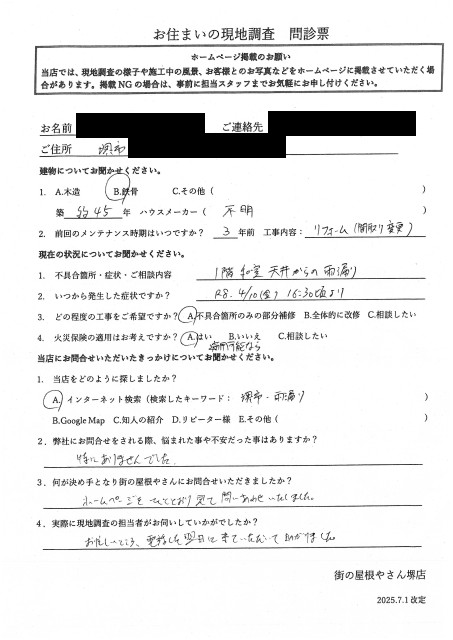 お住まいの現地調査 問診票
ホームページ掲載のお願い
当店では、現地調査の様子や施工中の風景、お客様とのお写真などをホームページに掲載させていただく場
合があります。掲載NGの場合は、事前に担当スタッフまでお気軽にお申し付けください。
お名前 ご連絡先
ご住所 堺市
建物についてお聞かせください。
1. A.木造 B.鉄骨 C.その他（ ）
築 約45 年 ハウスメーカー（ 不明 ）
2. 前回のメンテナンス時期はいつですか？ 3 年前 工事内容： リフォーム（間取り変更）
現在の状況についてお聞かせください。
1. 不具合箇所・症状・ご相談内容 1階 和室 天井からの雨漏り
2. いつから発生した症状ですか？ R8. 4/10(金) 16:30頃より
3. どの程度の工事をご希望ですか？ A.不具合箇所のみの部分補修 B.全体的に改修 C.相談したい
4. 火災保険の適用はお考えですか？ A.はい B.いいえ C.相談したい
適用可能なら
当店にお問合せいただいたきっかけについてお聞かせください。
1. 当店をどのように探しましたか？
A. インターネット検索（検索したキーワード： 堺市・雨漏り ）
B.Google Map C.知人の紹介 D.リピーター様 E.その他（ ）
2．弊社にお問合せをされる際、悩まれた事や不安だった事はありますか？
特にありませんでした。
3．何が決め手となり街の屋根やさんにお問合せいただきましたか？
ホームページを ひととおり見て 問いあわせいたしました。
4．実際に現地調査の担当者がお伺いしていかがでしたか？
お忙しいところ、電話した翌日に来ていただいて助かりました
街の屋根やさん堺店
2025.7.1 改定